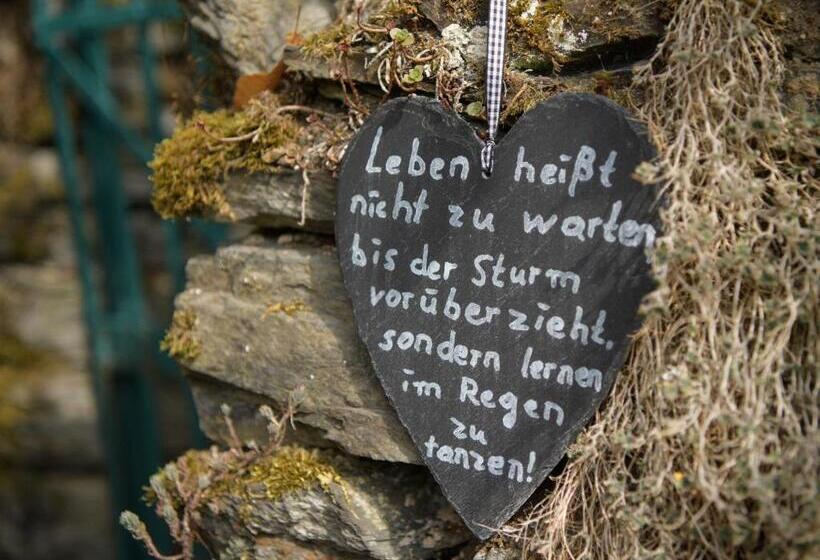 Leben heißt
nicht zu warten
bis der Sturm
vorüberzieht,
sondern lernen
im Regen
zu
tanzen!